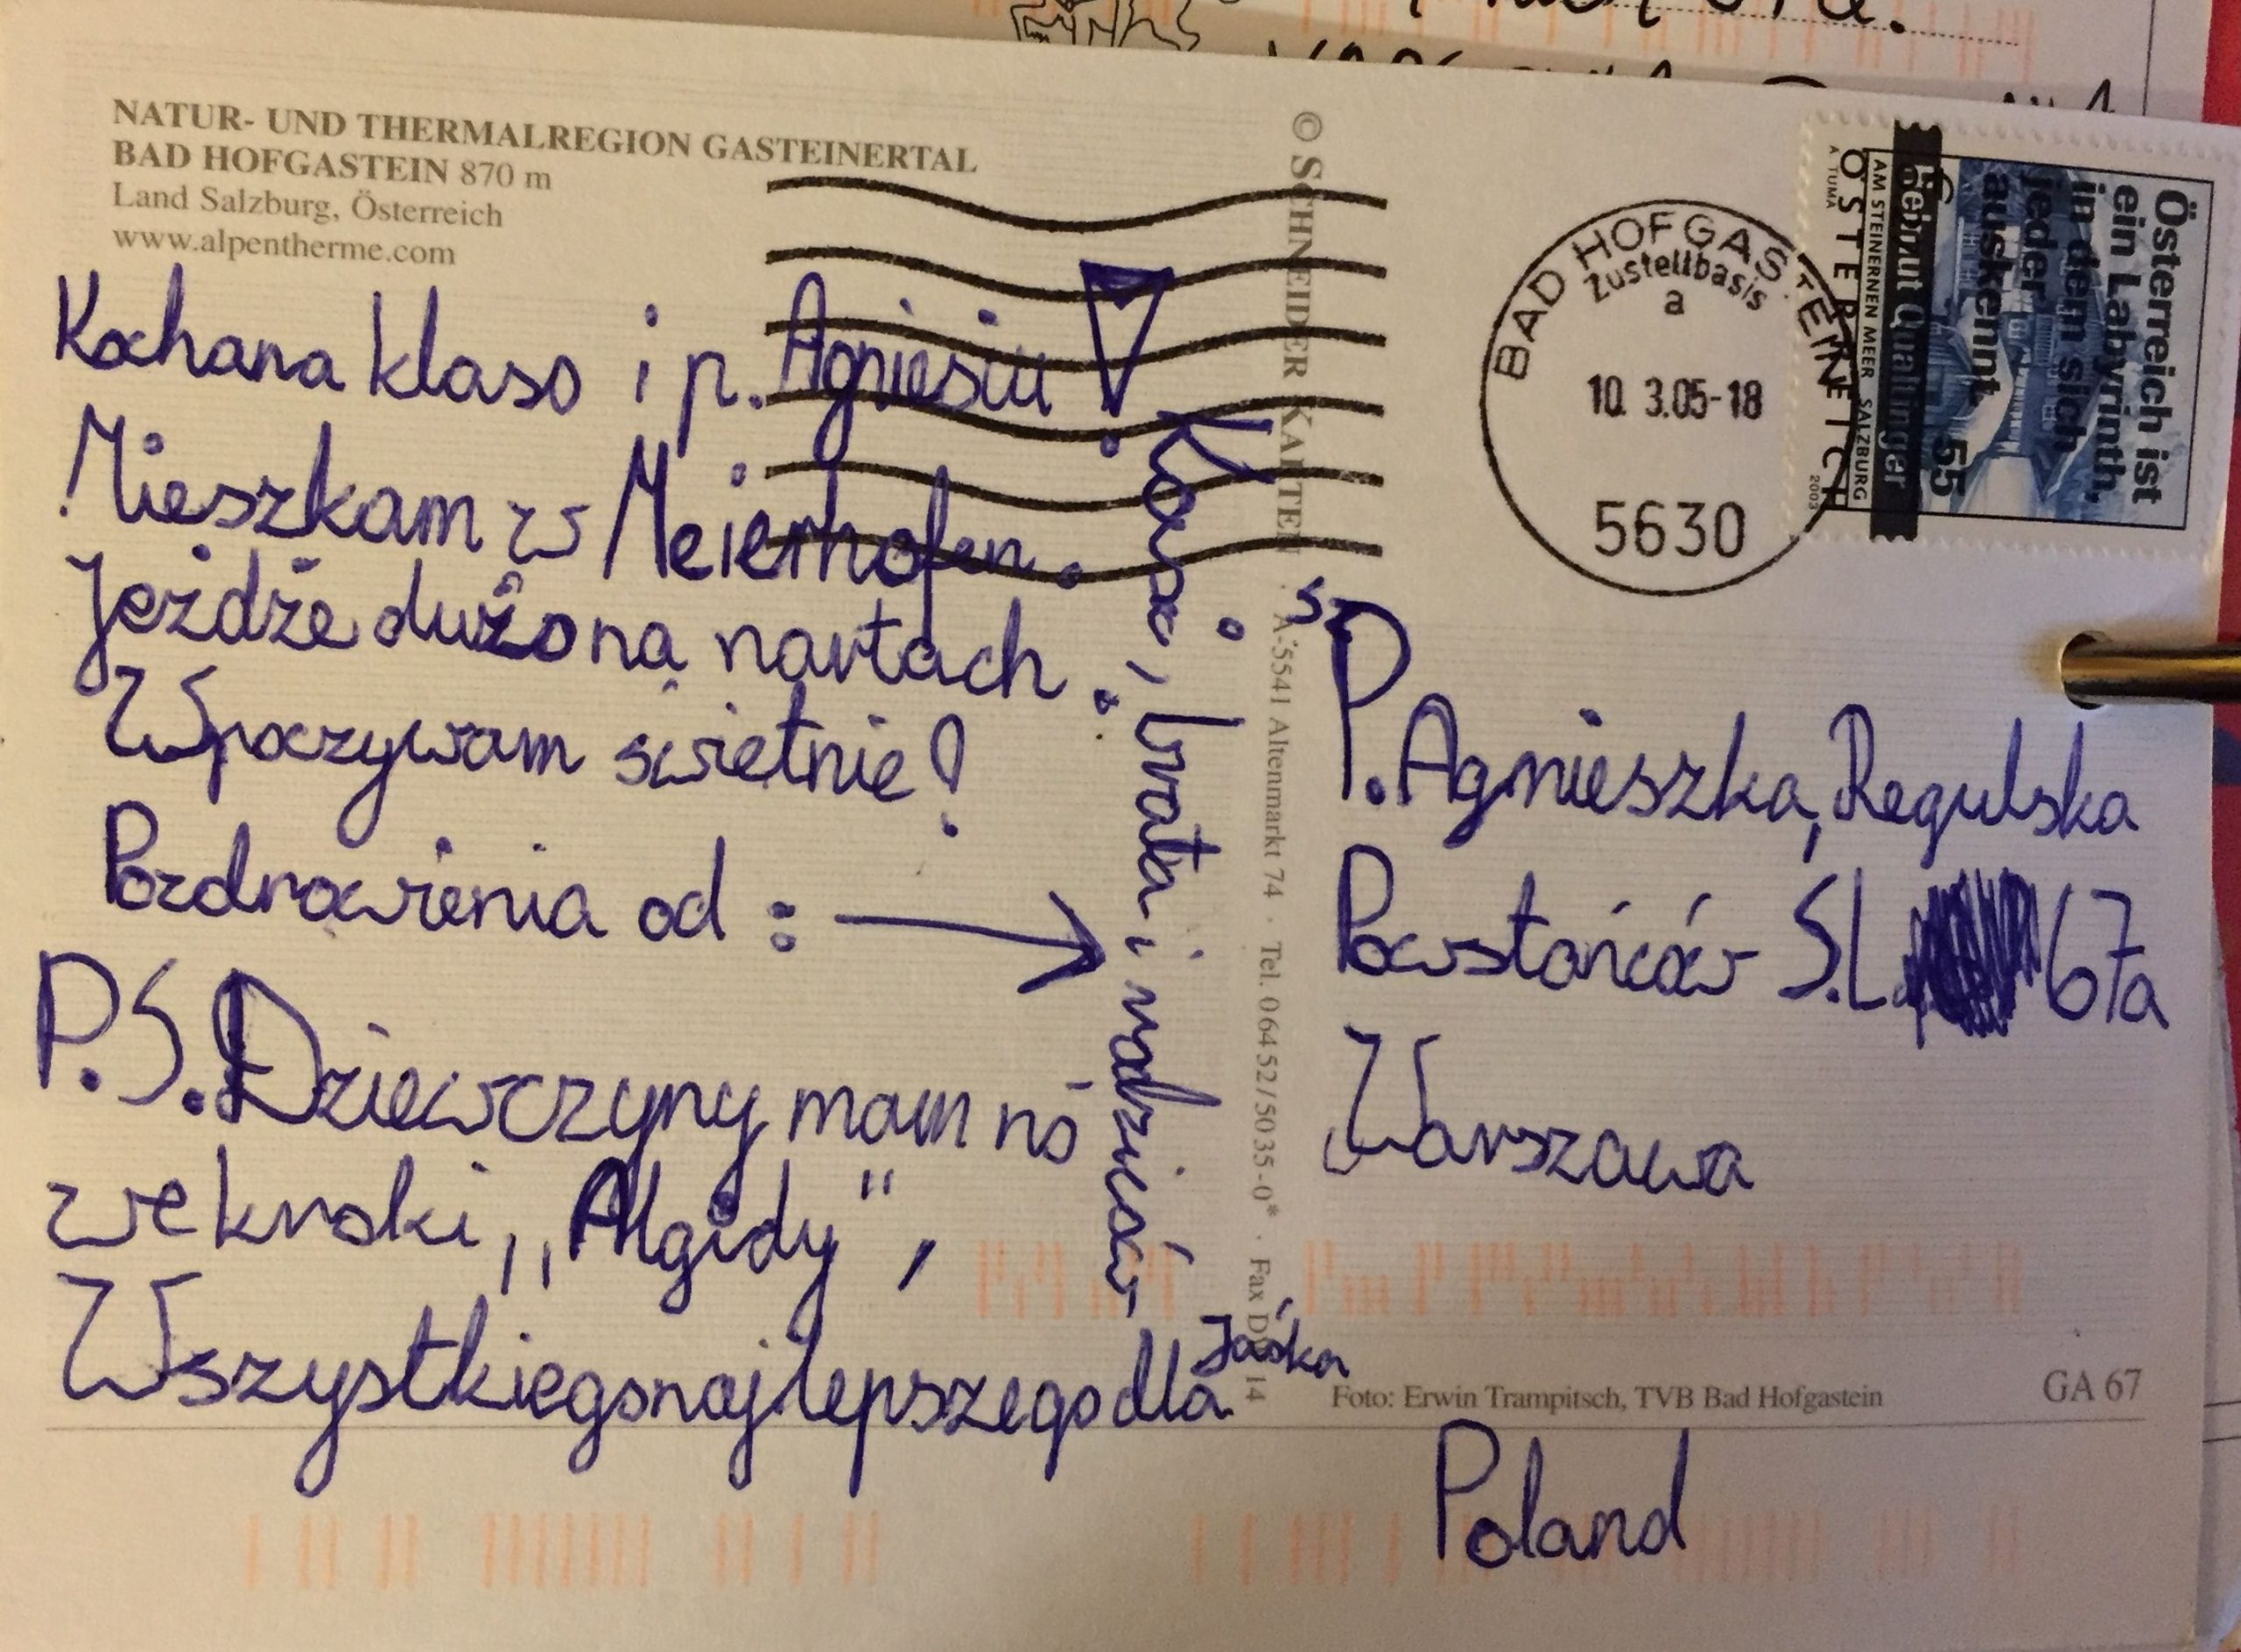 NATUR- UND THERMALREGION GASTEINERTAL
BAD HOFGASTEIN 870 m
Land Salzburg, Österreich
www.alpentherme.com
Kochana klaso i p. Agniesiu!
Mieszkam w Meierhofen.
Jeżdże dużo na nartach.
Wpoczywam świetnie!
Pozdrowienia od: →
P.S. Dziewczyny mam no
we kroki, „Algidy",
Wszystkiego najlepszego dla
Jaśka
brata i rodziców
© SCHNEIDER KARTEN · A-5541 Altenmarkt 74 · Tel. 06452/5035-0* · Fax DW 14
BAD HOFGASTEIN
Zustellbasis
a
10. 3.05-18
5630
Österreich ist
ein Labyrinth,
in dem sich
jeder
auskennt.
Helmut Qualtinger
55
AM STEINERNEN MEER SALZBURG
ÖSTERREICH
A TUMA
2003
Sz
P. Agnieszka, Regulska
Powstańców S.L. 67a
Warszawa
Foto: Erwin Trampitsch, TVB Bad Hofgastein
GA 67
Poland